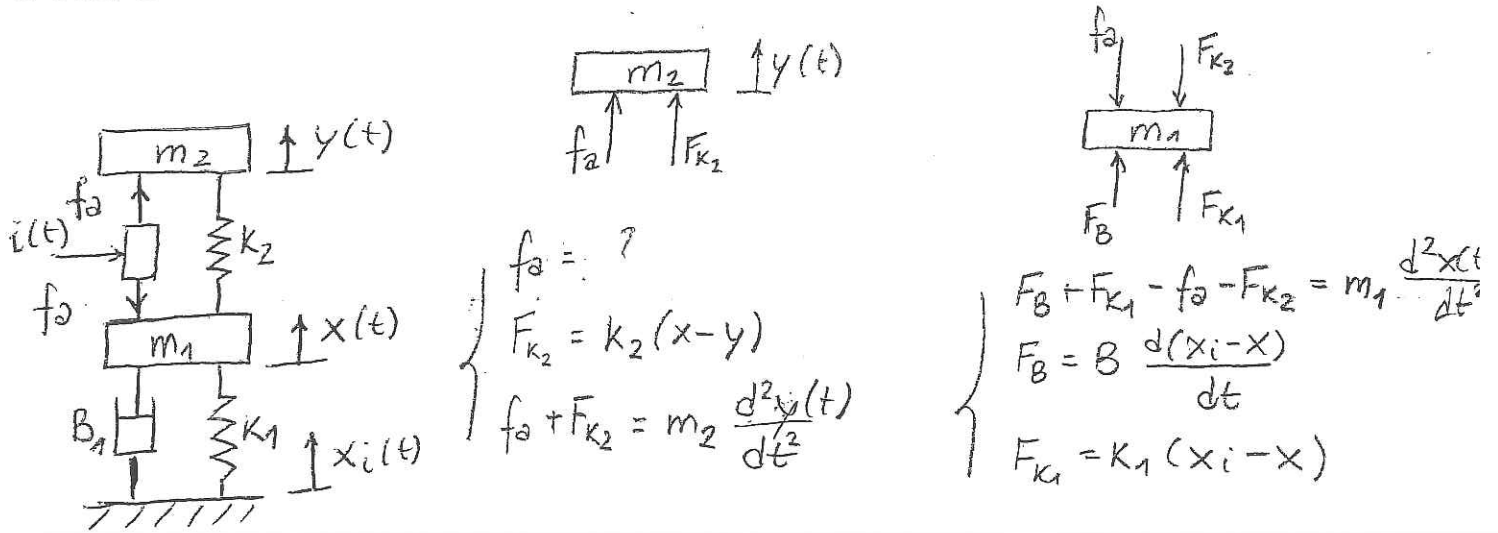 m₂
y(t)
fa
i(t)
K₂
fa
m₁
x(t)
B₁
K₁
xᵢ(t)
m₂
y(t)
fa
F_K₂
fa = ?
F_K₂ = K₂(x-y)
fa + F_K₂ = m₂ d²y(t)/dt²
fa
F_K₂
m₁
F_B
F_K₁
F_B + F_K₁ - fa - F_K₂ = m₁ d²x(t/dt²
F_B = B d(xᵢ-x)/dt
F_K₁ = K₁(xᵢ-x)